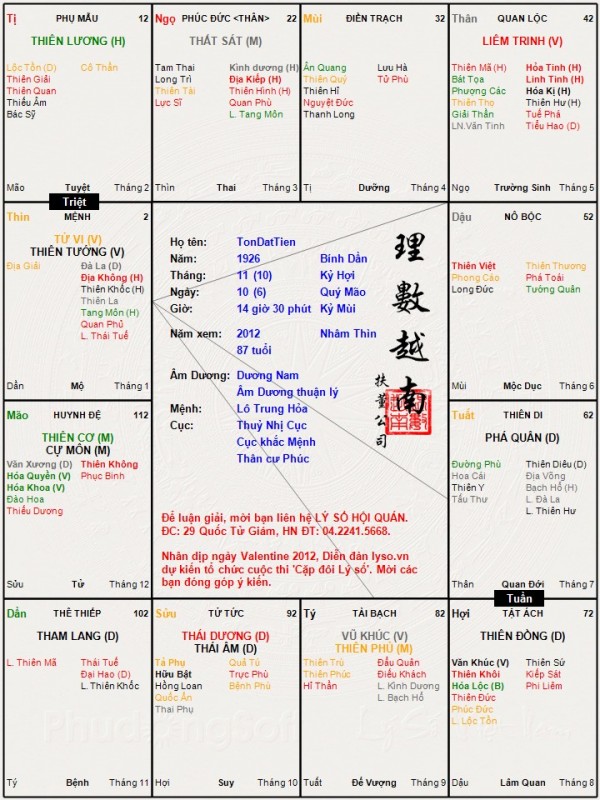 Tị PHỤ MẪU 12
THIÊN LƯƠNG (H)
Lộc Tồn (D) Cô Thần
Thiên Giải
Thiên Quan
Thiếu Âm
Bác Sỹ
Mão Tuyệt Tháng 2
Ngọ PHÚC ĐỨC <THÂN> 22
THẤT SÁT (M)
Tam Thai Kình dương (H)
Long Trì Địa Kiếp (H)
Thiên Tài Thiên Hình (H)
Lực Sĩ Quan Phù
L. Tang Môn
Thìn Thai Tháng 3
Mùi ĐIỀN TRẠCH 32
Ân Quang Lưu Hà
Thiên Quý Tử Phù
Thiên Hỉ
Nguyệt Đức
Thanh Long
Tị Dưỡng Tháng 4
Thân QUAN LỘC 42
LIÊM TRINH (V)
Thiên Mã (H) Hỏa Tinh (H)
Bát Tọa Linh Tinh (H)
Phượng Các Hóa Kị (H)
Thiên Thọ Thiên Hư (H)
Giải Thần Tuế Phá
LN.Văn Tinh Tiểu Hao (D)
Ngọ Trường Sinh Tháng 5
Triệt
Thìn MỆNH 2
TỬ VI (V)
THIÊN TƯỚNG (V)
Địa Giải Đà La (D)
Địa Không (H)
Thiên Khốc (H)
Thiên La
Tang Môn (H)
Quan Phủ
L. Thái Tuế
Dần Mộ Tháng 1
Họ tên: TonDatTien
Năm: 1926 Bính Dần
Tháng: 11 (10) Kỷ Hợi
Ngày: 10 (6) Quý Mão
Giờ: 14 giờ 30 phút Kỷ Mùi
Năm xem: 2012 Nhâm Thìn
87 tuổi
Âm Dương: Dương Nam
Âm Dương thuận lý
Mệnh: Lô Trung Hỏa
Cục: Thuỷ Nhị Cục
Cục khắc Mệnh
Thân cư Phúc
理數越南
扶董公司
Để luận giải, mời bạn liên hệ LÝ SỐ HỘI QUÁN.
ĐC: 29 Quốc Tử Giám, HN ĐT: 04.2241.5668.
Nhân dịp ngày Valentine 2012, Diễn đàn lyso.vn
dự kiến tổ chức cuộc thi 'Cặp đôi Lý số'. Mời các
bạn đóng góp ý kiến.
Dậu NÔ BỘC 52
Thiên Việt Thiên Thương
Phong Cáo Phá Toái
Long Đức Tướng Quân
Mùi Mộc Dục Tháng 6
Mão HUYNH ĐỆ 112
THIÊN CƠ (M)
CỰ MÔN (M)
Văn Xương (D) Thiên Không
Hóa Quyền (V) Phục Binh
Hóa Khoa (V)
Đào Hoa
Thiếu Dương
Sửu Tử Tháng 12
Tuất THIÊN DI 62
PHÁ QUÂN (D)
Đường Phù Thiên Diêu (D)
Hoa Cái Địa Võng
Thiên Y Bạch Hổ (H)
Tấu Thư L. Đà La
L. Thiên Hư
Thân Quan Đới Tháng 7
Tuần
Dần THÊ THIẾP 102
THAM LANG (D)
L. Thiên Mã Thái Tuế
Đại Hao (D)
L. Thiên Khốc
Tý Bệnh Tháng 11
Sửu TỬ TỨC 92
THÁI DƯƠNG (D)
THÁI ÂM (D)
Tả Phụ Quả Tú
Hữu Bật Trực Phù
Hồng Loan Bệnh Phù
Quốc Ấn
Thai Phụ
Hợi Suy Tháng 10
Tý TÀI BẠCH 82
VŨ KHÚC (V)
THIÊN PHỦ (M)
Thiên Trù Đẩu Quân
Thiên Phúc Điếu Khách
Hỉ Thần L. Kình Dương
L. Bạch Hổ
Tuất Đế Vượng Tháng 9
Hợi TẬT ÁCH 72
THIÊN ĐỒNG (D)
Văn Khúc (V) Thiên Sứ
Thiên Khôi Kiếp Sát
Hóa Lộc (B) Phi Liêm
Thiên Đức
Phúc Đức
L. Lộc Tồn
Dậu Lâm Quan Tháng 8